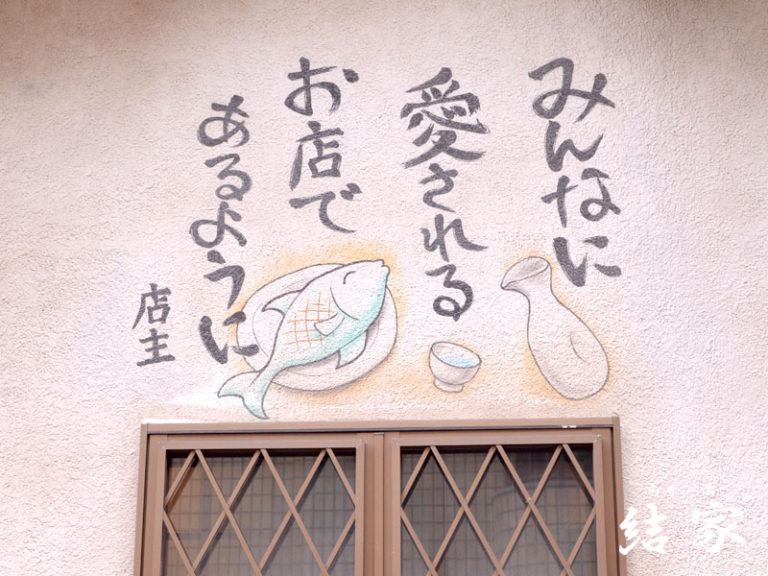 みんなに
愛される
お店で
あるように
店主
結家